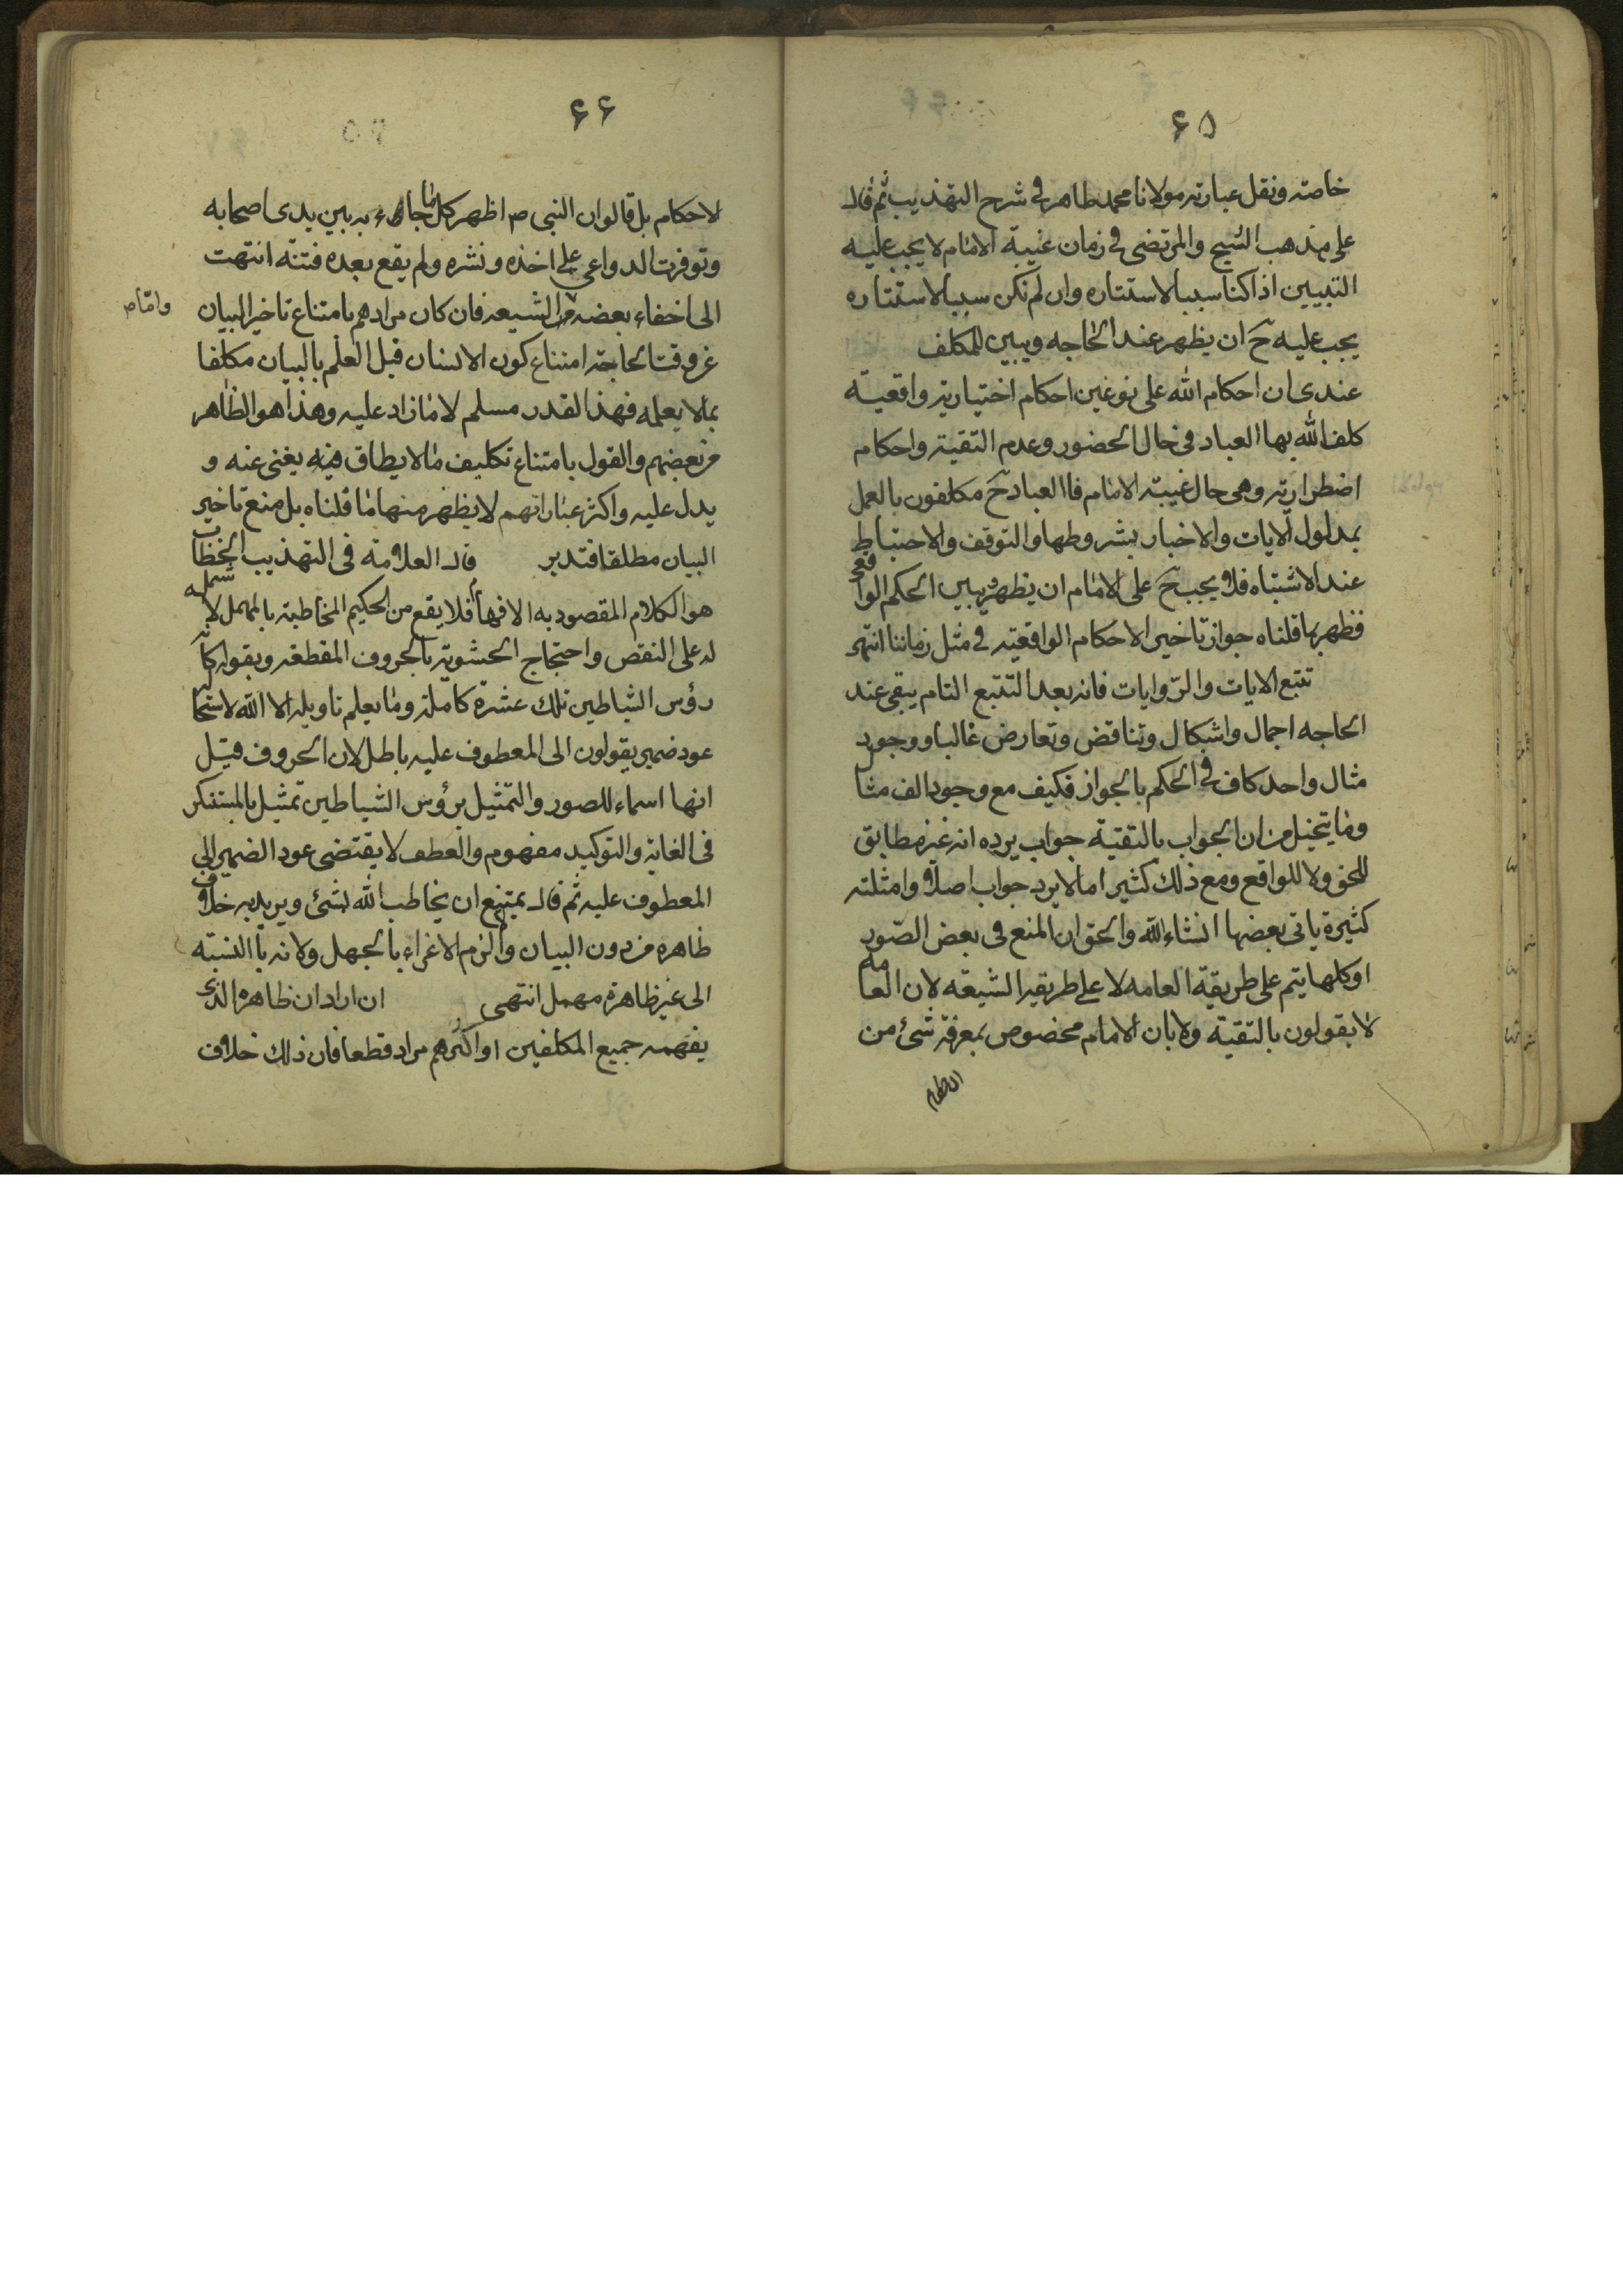 ۶۵
خاصته ونقل عبارته مولانا محمد طاهر في شرح التهذيب ثم قال
على مذهب الشيخ والمرتضى في زمان غيبة الامام لا يجب عليه
التبيين اذا كنا سببا لاستتاره وان لم نكن سببا لاستتاره
يجب عليه ح ان يظهر عند الحاجه ويبين للمكلف
عندى ان احكام الله على نوعين احكام اختيارية واقعية
كلف الله بها العباد في حال الحضور وعدم التقية واحكام
اضطرارية وهى حال غيبة الامام فالعباد ح مكلفون بالعمل
بمدلول الايات والاخبار بشروطها والتوقف والاحتياط
عند الاشتباه فلا يجب ح على الامام ان يظهر ويبين الحكم الواقعى
فظهر بما قلناه جواز تاخير الاحكام الواقعية في مثل زماننا انتهى
تتبع الايات والروايات فانه بعد التتبع التام يبقى عند
الحاجه اجمال واشكال وتناقض وتعارض غالبا ووجود
مثال واحد كاف في الحكم بالجواز فكيف مع وجود الف مثال
وما يتخيل من ان الجواب بالتقية جواب يرده انه غير مطابق
للحق ولا للواقع ومع ذلك كثيرا ما لا يرد جواب اصلا وامثلته
كثيرة ياتى بعضها انشاء لله والحق ان المنع فى بعض الصور
او كلها يتم على طريقة العامه لا على طريقة الشيعه لان العامه
لا يقولون بالتقية ولا بان الامام مخصوص بمعرفة شئ من
الاحكام
۶۶
لاحكام بل قالوا ان النبى ص اظهر كل ما جاء به بين يدى اصحابه
وتوفرت الدواعي على اخذه ونشره ولم يقع بعده فتنة انتهت
الى اخفاء بعضه واما الشيعه فان كان مرادهم بامتناع تاخير البيان
عن وقت الحاجة امتناع كون الانسان قبل العلم بالبيان مكلفا
بما لا يعلمه فهذا القدر مسلم لا ما زاد عليه وهذا هو الظاهر
من بعضهم والقول بامتناع تكليف ما لا يطاق فيه يغنى عنه و
يدل عليه واكثر عباراتهم لا يظهر منها ما قلناه بل منع تاخير
البيان مطلقا فتدبر قال العلامة فى التهذيب الخطاب
هو الكلام المقصود به الافهام فلا يقع من الحكيم المخاطبة بالمهمل لاشتماله
له على النقص واحتجاج الحشوية بالحروف المقطعه وبقوله كانه
رؤس الشياطين تلك عشرة كاملة وما يعلم تاويله الا الله لاستحالة
عود ضمير يقولون الى المعطوف عليه باطل لان الحروف قيل
انها اسماء للصور والتمثيل برؤس الشياطين تمثيل بالمستنكر
فى الغاية والتوكيد مفهوم والعطف لا يقتضى عود الضمير الى
المعطوف عليه ثم قال يمتنع ان يخاطب الله بشئ ويريد به خلاف
ظاهره من دون البيان والزم الاغراء بالجهل ولانه بالنسبة
الى غير ظاهرة مهمل انتهى ان اراد ان ظاهره الذى
يفهمه جميع المكلفين او اكثرهم مراد قطعا فان ذلك خلاف